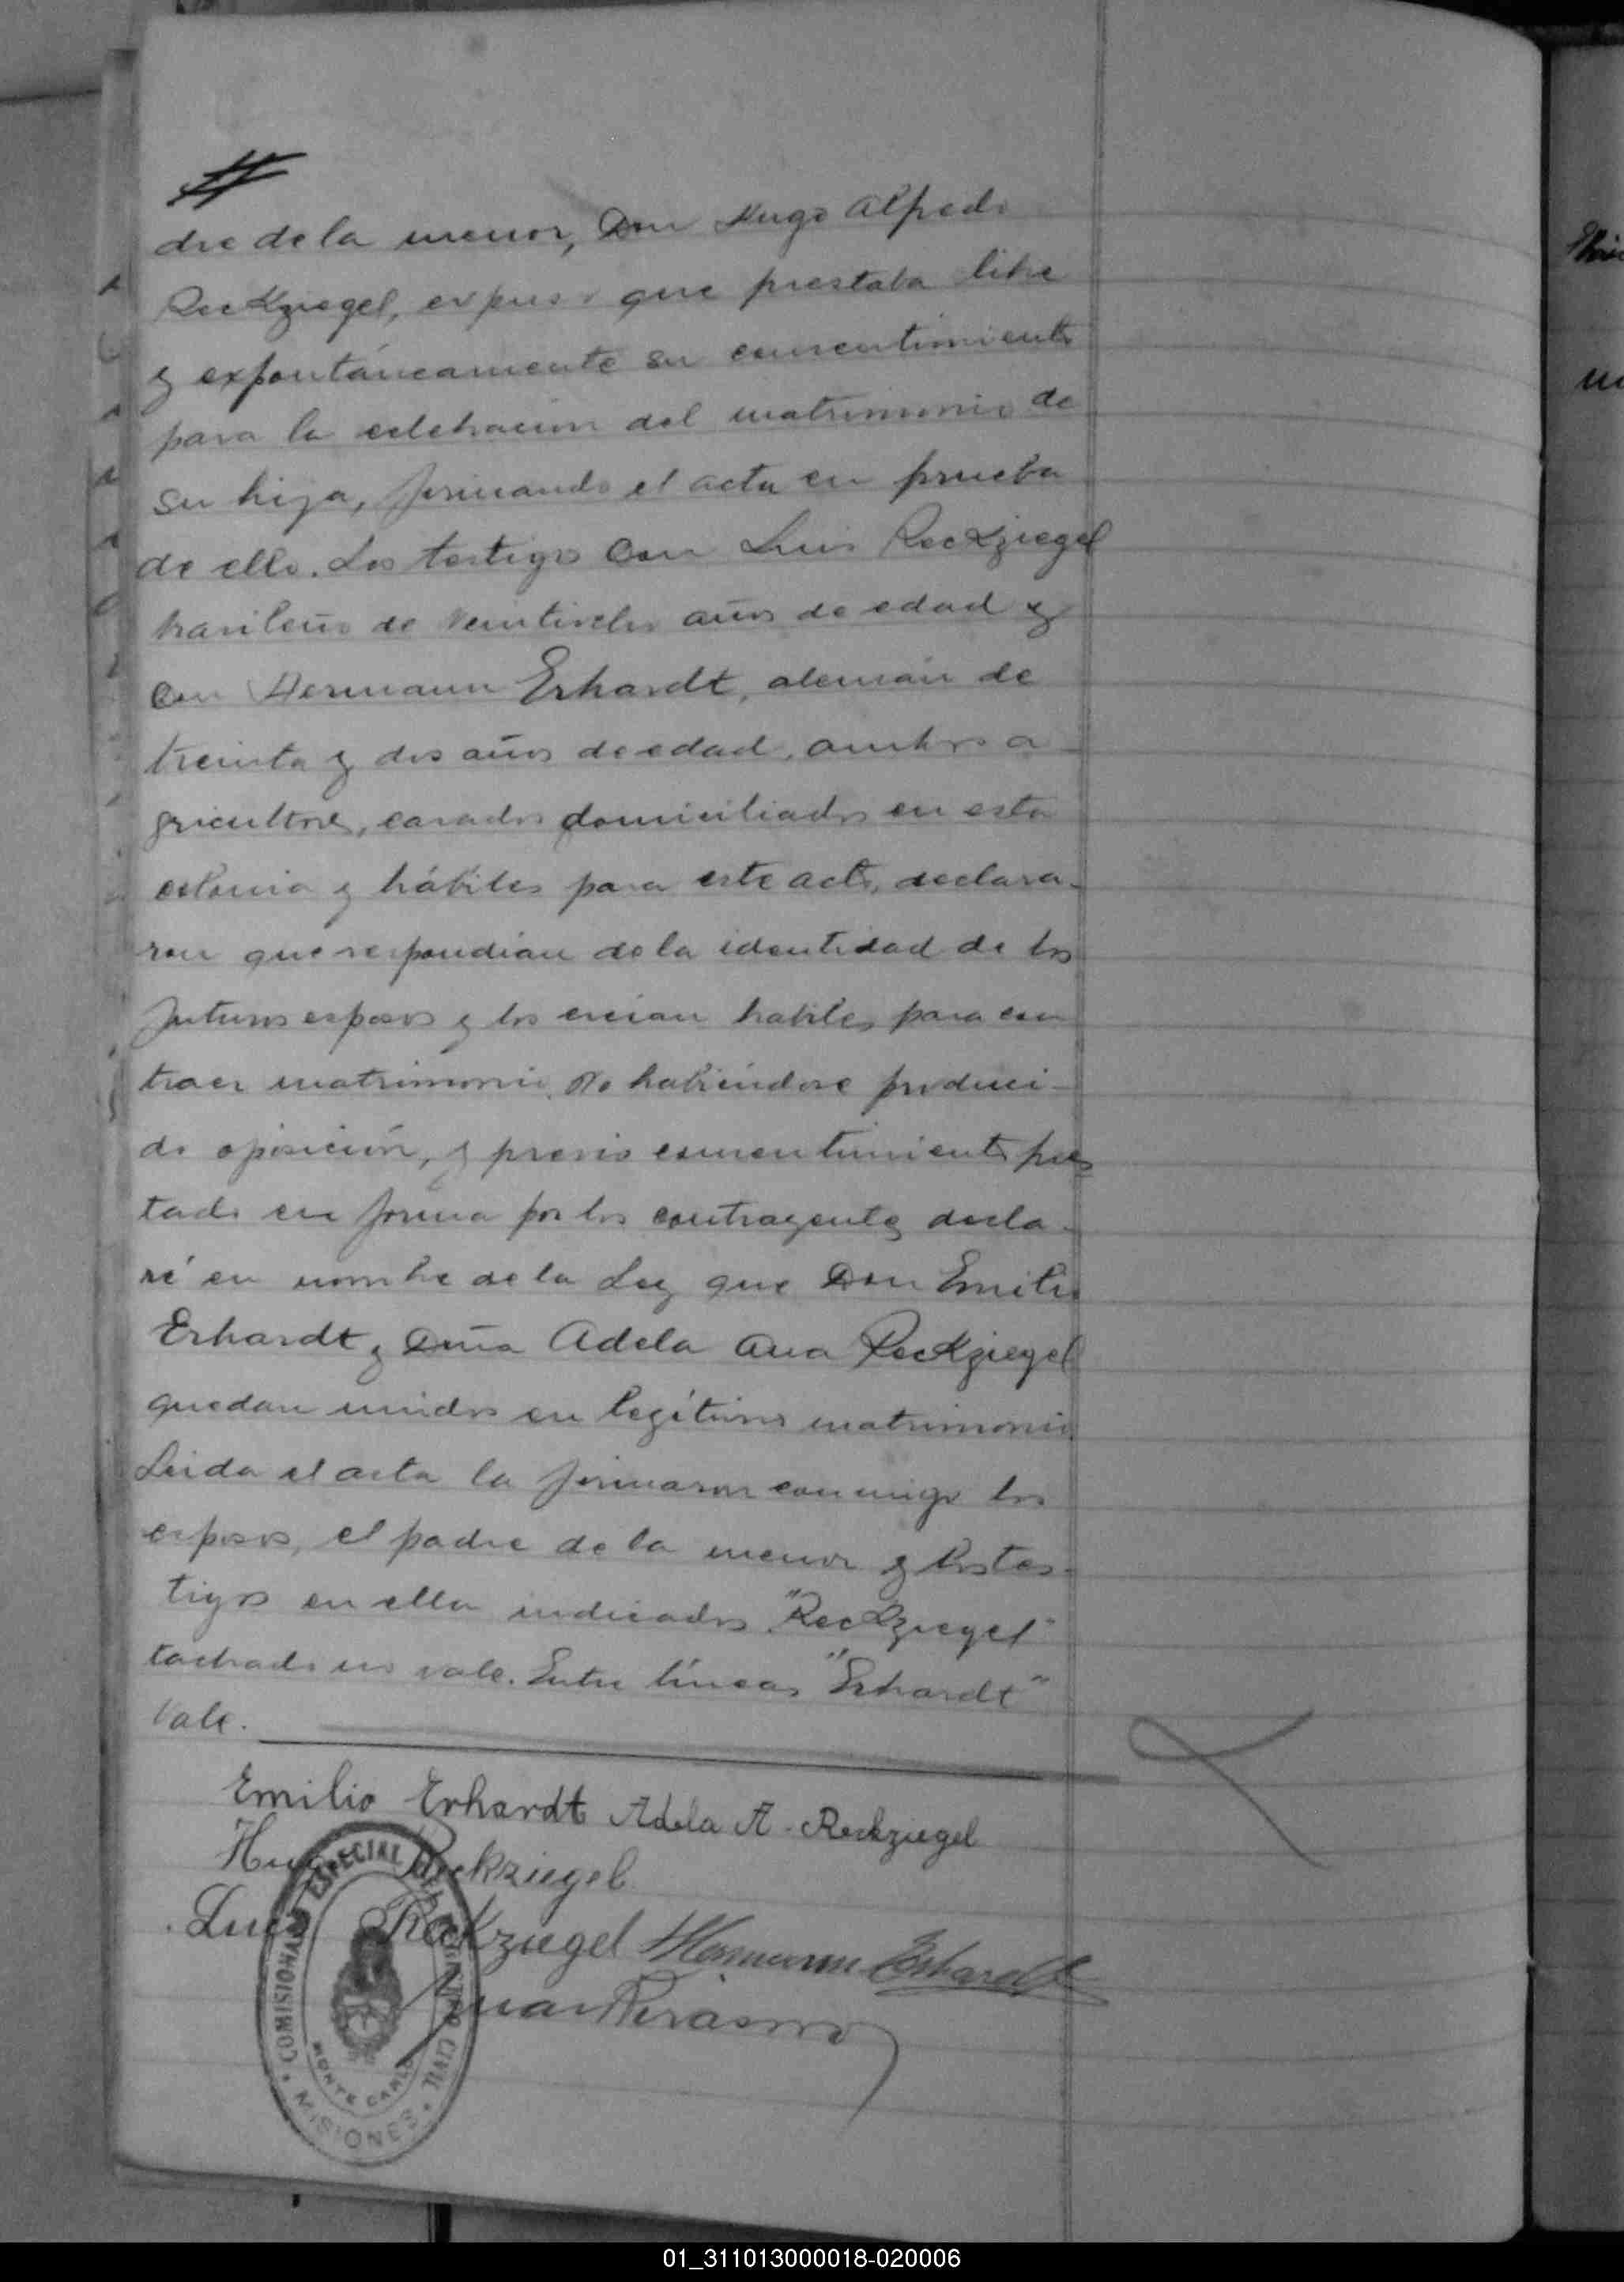 dre de la menor, Don Hugo Alfredo
Reckziegel, expuso que prestaba libre
y expontáneamente su consentimiento
para la celebracion del matrimonio de
su hija, firmando el acta en prueba
de ello. Los testigos Don Luis Reckziegel
brasileño de años de edad y
Don Hermann Erhardt, alemán de
treinta y dos años de edad, ambos a
gricultores, casados domiciliados en esta
colonia y hábiles para este acto, declara-
ron que respondian de la identidad de los
futuros esposos y los creian habiles para con
traer matrimonio. No habiéndose produci-
do oposición, y previo consentimiento pres
tado en forma por los contrayentes decla-
ré en nombre de la Ley que Don Emilio
Erhardt y Doña Adela Ana Reckziegel
quedan unidos en legítimo matrimonio.
Leida el acta la firmaron conmigo los
esposos, el padre de la menor y los tes-
tigos en ella indicados. "Reckziegel"
tachado no vale. Entre líneas "Erhardt"
Vale.
Emilio Erhardt Adela A. Reckziegel
Hugo Reckziegel
Luis Reckziegel Hermann Erhardt
Juan
COMISIONADO ESPECIAL DEL REGISTRO CIVIL
MONTE CARLO
MISIONES
01_311013000018-020006